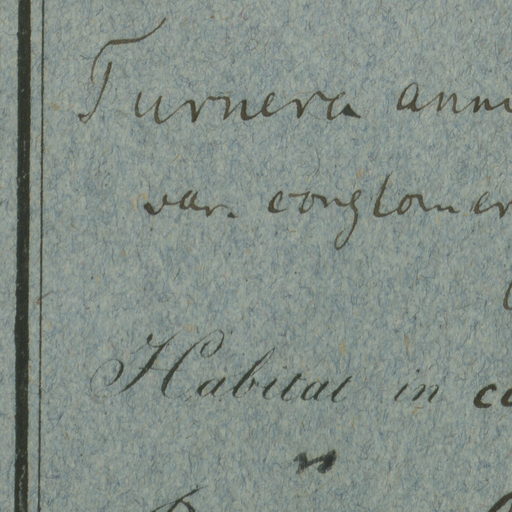 Turnera ann
var. conglomer
Habitat in co